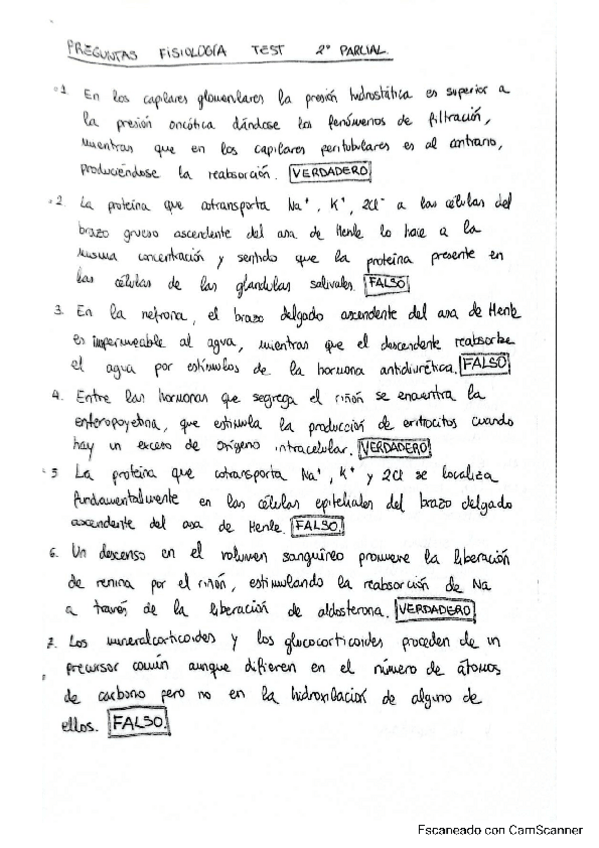 PREGUNTAS FISIOLOGÍA TEST 2º PARCIAL.
1. En los capilares glomerulares la presión hidrostática es superior a
la presión oncótica dándose los fenómenos de filtración,
mientras que en los capilares peritubulares es al contrario,
produciéndose la reabsorción. VERDADERO
2. La proteína que cotransporta Na⁺, K⁺, 2Cl⁻ a las células del
brazo grueso ascendente del asa de Henle lo hace a la
misma concentración y sentido que la proteína presente en
las células de las glándulas salivales. FALSO
3. En la nefrona, el brazo delgado ascendente del asa de Henle
es impermeable al agua, mientras que el descendente reabsorbe
el agua por estímulos de la hormona antidiurética. FALSO
4. Entre las hormonas que segrega el riñón se encuentra la
enteropoyetina, que estimula la producción de eritrocitos cuando
hay un exceso de oxígeno intracelular. VERDADERO
5 La proteína que cotransporta Na⁺, K⁺ y 2Cl se localiza
fundamentalmente en las células epiteliales del brazo delgado
ascendente del asa de Henle. FALSO.
6. Un descenso en el volumen sanguíneo promueve la liberación
de renina por el riñón, estimulando la reabsorción de Na
a través de la liberación de aldosterona. VERDADERO
7. Los mineralcorticoides y los glucocorticoides proceden de un
precursor común aunque difieren en el número de átomos
de carbono pero no en la hidroxilación de alguno de
ellos. FALSO.
Escaneado con CamScanner